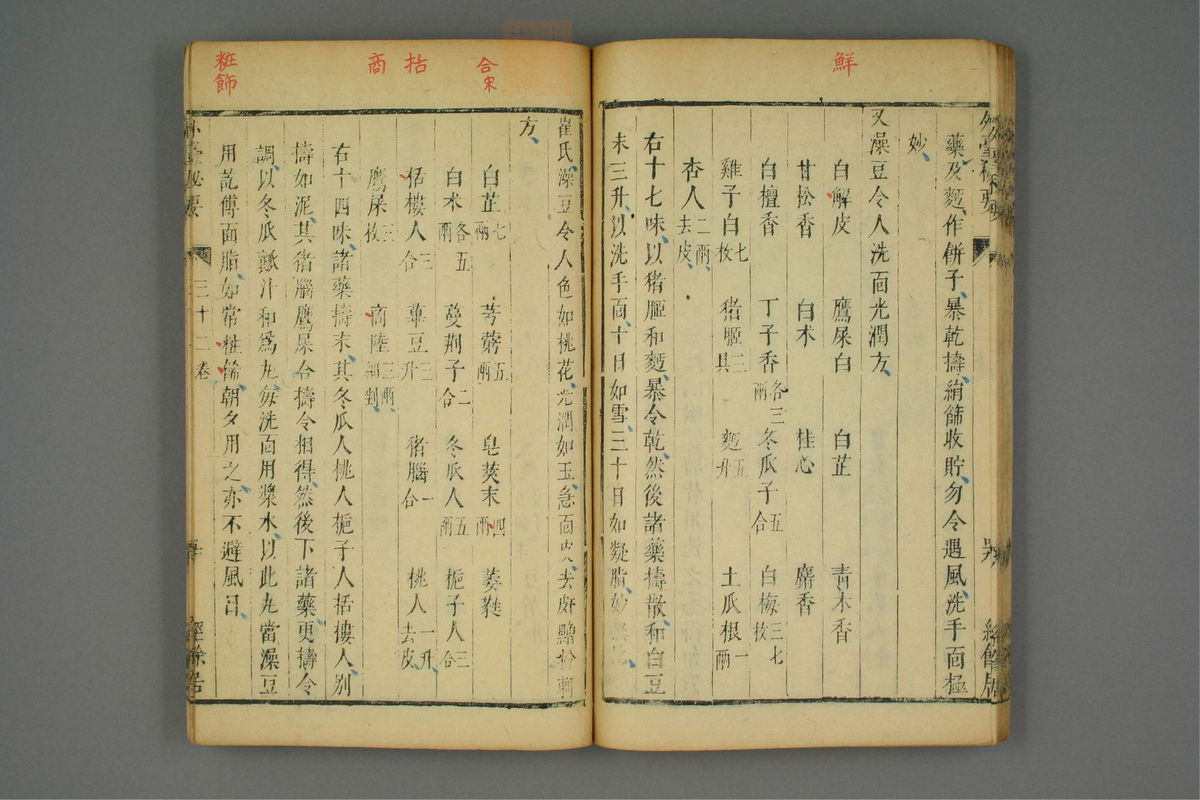 鮮
藥及麪作餅子暴乾擣絹篩收貯勿令遇風洗手面極
妙
又澡豆令人洗面光潤方
白解皮 鷹屎白 白芷 青木香
甘松香 白术 桂心 麝香
白檀香 丁子香各三兩 冬瓜子五合 白梅三七枚
雞子白七枚 猪胵三具 麪五升 土瓜根一兩
杏人二兩去皮
右十七味以猪胵和麪暴令乾然後諸藥擣散和白豆
末三升以洗手面十日如雪三十日如凝脂妙
合宋
括
商
粧飾
崔氏澡豆令人色如桃花光潤如玉急面皮去皯䵟粉刺
方
白芷七兩 芎藭五兩 皂莢末四兩 葳蕤
白术各五兩 蔓荆子二合 冬瓜人五兩 梔子人三合
栝樓人三合 蓽豆三升 猪腦一合 桃人一升去皮
鷹屎三枚 商陸三兩細剉
右十四味諸藥擣末其冬瓜人桃人梔子人栝樓人別
擣如泥其猪腦鷹屎合擣令相得然後下諸藥更擣令
調以冬瓜瓤汁和為丸每洗面用漿水以此丸當澡豆
用訖傅面脂如常粧餙朝夕用之亦不避風日
外臺秘要 三十二卷 經餘居